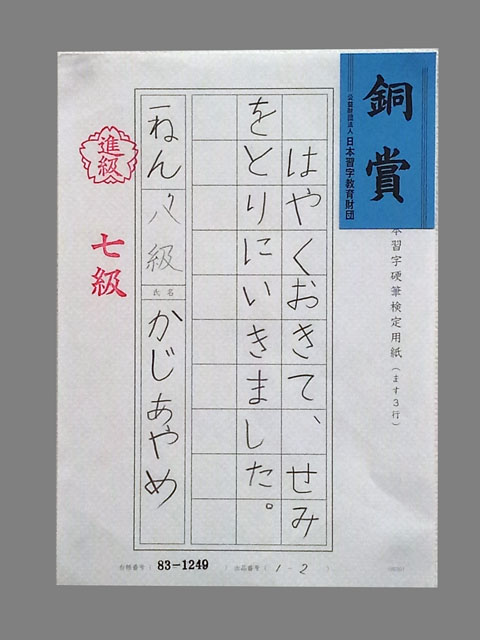 銅賞
公益財団法人 日本習字教育財団
本習字硬筆検定用紙(ます3行)
はやくおきて、せみ
をとりにいきました。
一ねん 八級 氏名 かじあやめ
進級
七級
83-1249 出品番号( 1-2 )